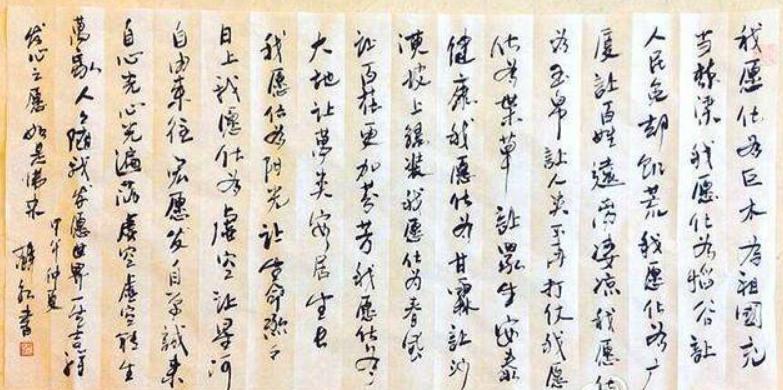 我愿化为巨木为祖国充
当栋梁我愿化为稻谷让
人民免却饥荒我愿化为广
厦让百姓远离凄凉我愿化
为玉帛让人类不再打仗我愿
化为药草让众生安泰
健康我愿化为甘霖让沙
漠披上绿装我愿化为春风
让百花更加芬芳我愿化为
大地让万类安居生长
我愿化为阳光让生命
日上我愿化为虚空让星河
自由来往宏愿发自早诚来
自心光心光遍满虚空虚空转生
万家人人随我发愿世界一生吉祥
发心之愿如是
甲午仲夏
书